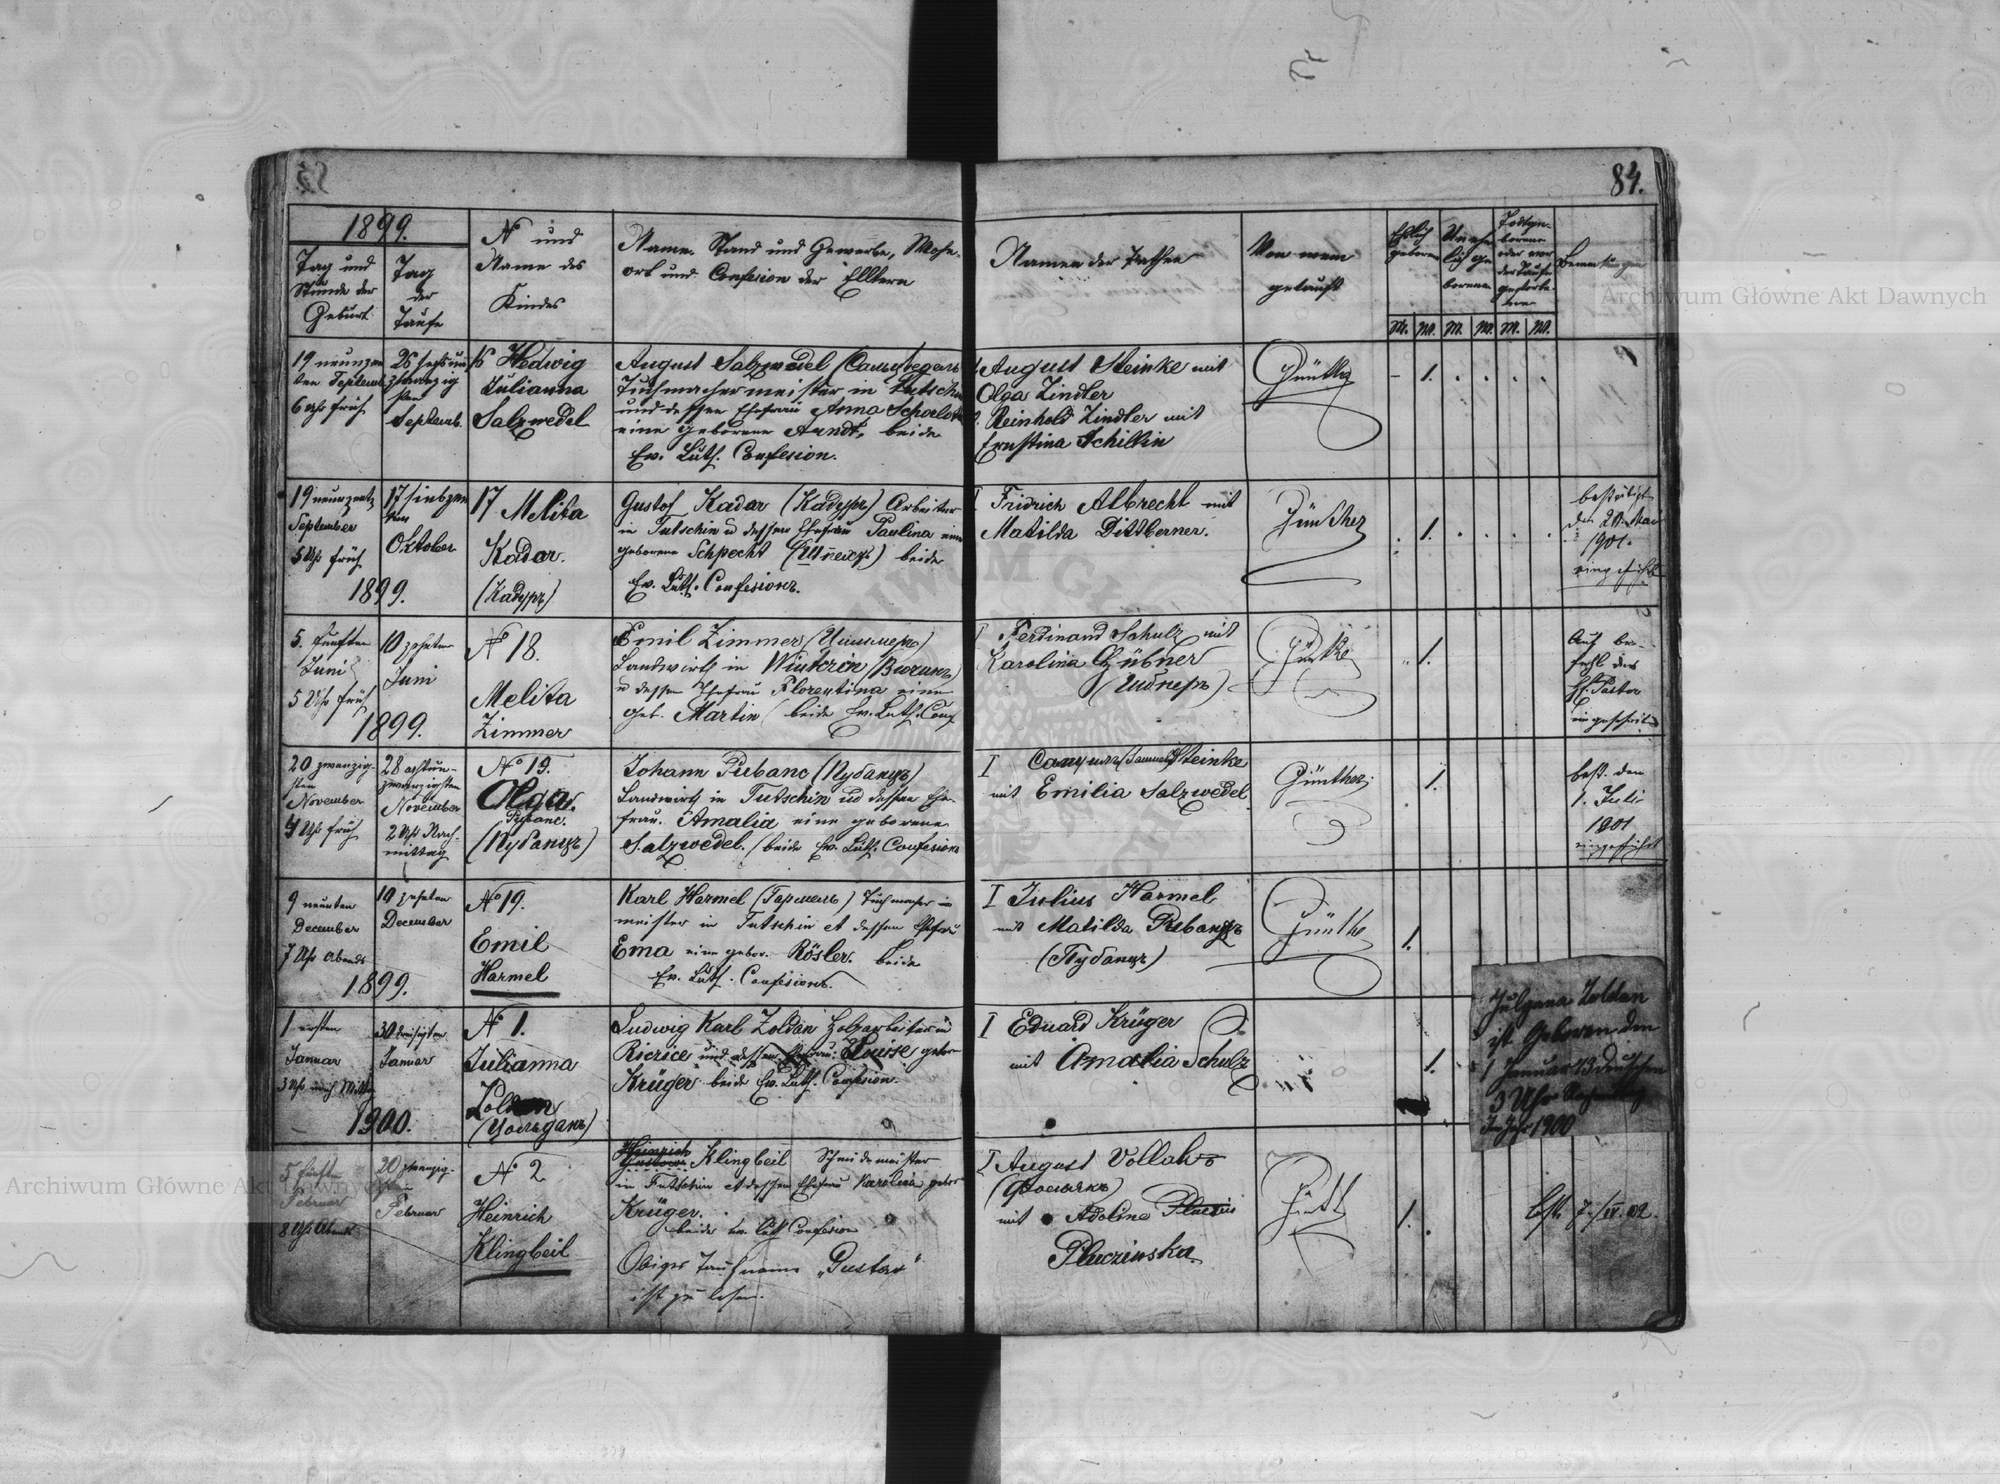 84.
1899.
Tag und
Stunde der
Geburt
Tag
der
Taufe
N und
Name des
Kindes
Name. Stand und Gewerbe, Wohn-
ort und Confesion der Elltern
Namen der Pathen
Von wem
getauft
Ehlich
geboren
Unehe
lich ge
borene
Todtge-
borene
oder vor
der Taufe
gestorbe-
ne
Bemerkungen
M. W. M. W. M. W.
Archiwum Główne Akt Dawnych
19 neunzen
ten Septemb.
6 uhr früh
26 sechsun
zwanzig
sten
Septemb.
16 Hedwig
Julianna
Salzwedel
August Salzwedel
Tuchmachermeister in Tutschin
und dessen Ehefrau Anna
eine geborene Arndt, beide
Ev. Luth. Confesion.
August Steinke mit
Olga Zindler
Reinhold Zindler mit
Ernstina Schilkin
1.
19 neunzent
September
5 Uhr früh
1899.
17 siebzen
ten
Oktober
17 Melita
Kadar.
(Кадуръ)
Gustof Kadar (Кадуръ) Arbeiter
in Tutschin u dessen Ehefrau Paulina eine
geborene Schpecht (Шпехтъ) beide
Ev. Luth. Confesion.
I Fridrich Albrecht mit
Matilda Dittberner.
Günther
1.
bestätigt
den 20. Mai
1901.
eingeführt
5. fünften
Juni
5 Uhr früh
1899.
10 zehnten
Juni
N° 18.
Melita
Zimmer
Emil Zimmer (Циммеръ)
Landwirt in
u dessen Ehefrau Florentina eine
geb. Martin beide Ev. Luth. Conf
I Ferdinand Schulz mit
Karolina Hübner
1.
Auf be-
fehl des
H. Pastor
20 zwanzig-
sten
November
4 Uhr früh
28 achtun-
zwanzigsten
November
2 Uhr Nach-
mittag
N° 19.
Olga
Pubanc.
(Пубанцъ)
Johann Pubanc (Пубанцъ)
Landwirt in Tutschin und dessen Ehe-
frau. Amalia eine geborene
Salzwedel. beide Ev. Luth. Confesion
I Самуилъ (Samuel) Steinke
mit Emilia Salzwedel
Günther
1.
best. den
1. Juli
1901
eingeführt
9 neunten
December
7 Uhr Abends
1899.
10 zehnten
December
N° 19.
Emil
Harmel
Karl Harmel (Гармель) Tuchmacher in
meister in Tutschin et dessen Ehefrau
Ema eine gebor. Rösler. beide
Ev. Luth. Confesion.
I Julius Harmel
mit Matilda
(Пубанцъ)
1.
1 ersten
Januar
3 Uhr nach Mittag
1900.
30 dreisigten
Januar
N° 1.
Julianna
Zoldan
(Цольданъ)
Ludwig Karl Zoldan Holzarbeiter in
und dessen Ehefrau: Louise gebor
Krüger beide Ev. Luth. Confesion.
I Eduard Krüger
mit Amalia Schulz
1.
Julyana Zoldan
ist Geboren den
1 Januar
3 Uhr
Im Jahr 1900
5 fünften
Februar
8 Uhr Abends
20 zwanzig-
sten
Februar
N° 2
Heinrich
Klingbeil
Heinrich
Gustow Klingbeil Schmidemeister
in Tutschin et dessen Ehefrau Karolina gebor
Krüger.
beide Ev. Luth Confesion
Obiger Taufname "Gustav"
ist zu lesen.
I August Vollak
mit Adolina
Pluczinska
1.
best. 7./IV. 02.
Archiwum Główne Akt Dawnych